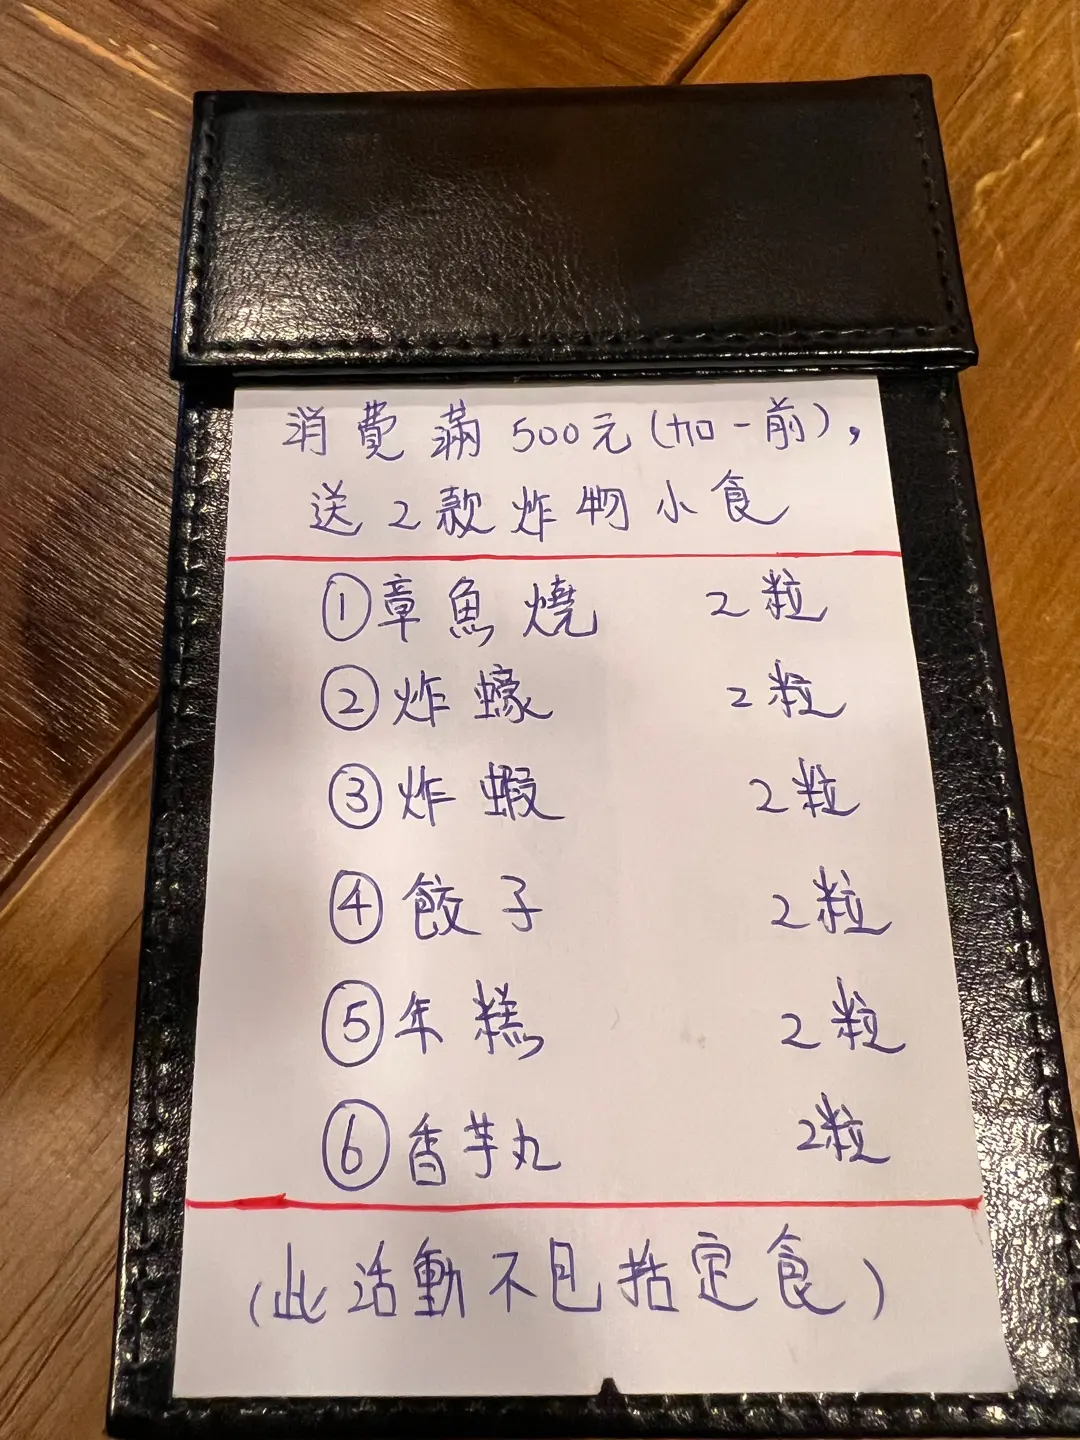 消費滿500元(加一前),
送2款炸物小食
①章魚燒 2粒
②炸蠔 2粒
③炸蝦 2粒
④餃子 2粒
⑤年糕 2粒
⑥香芋丸 2粒
(此活動不包括定食)